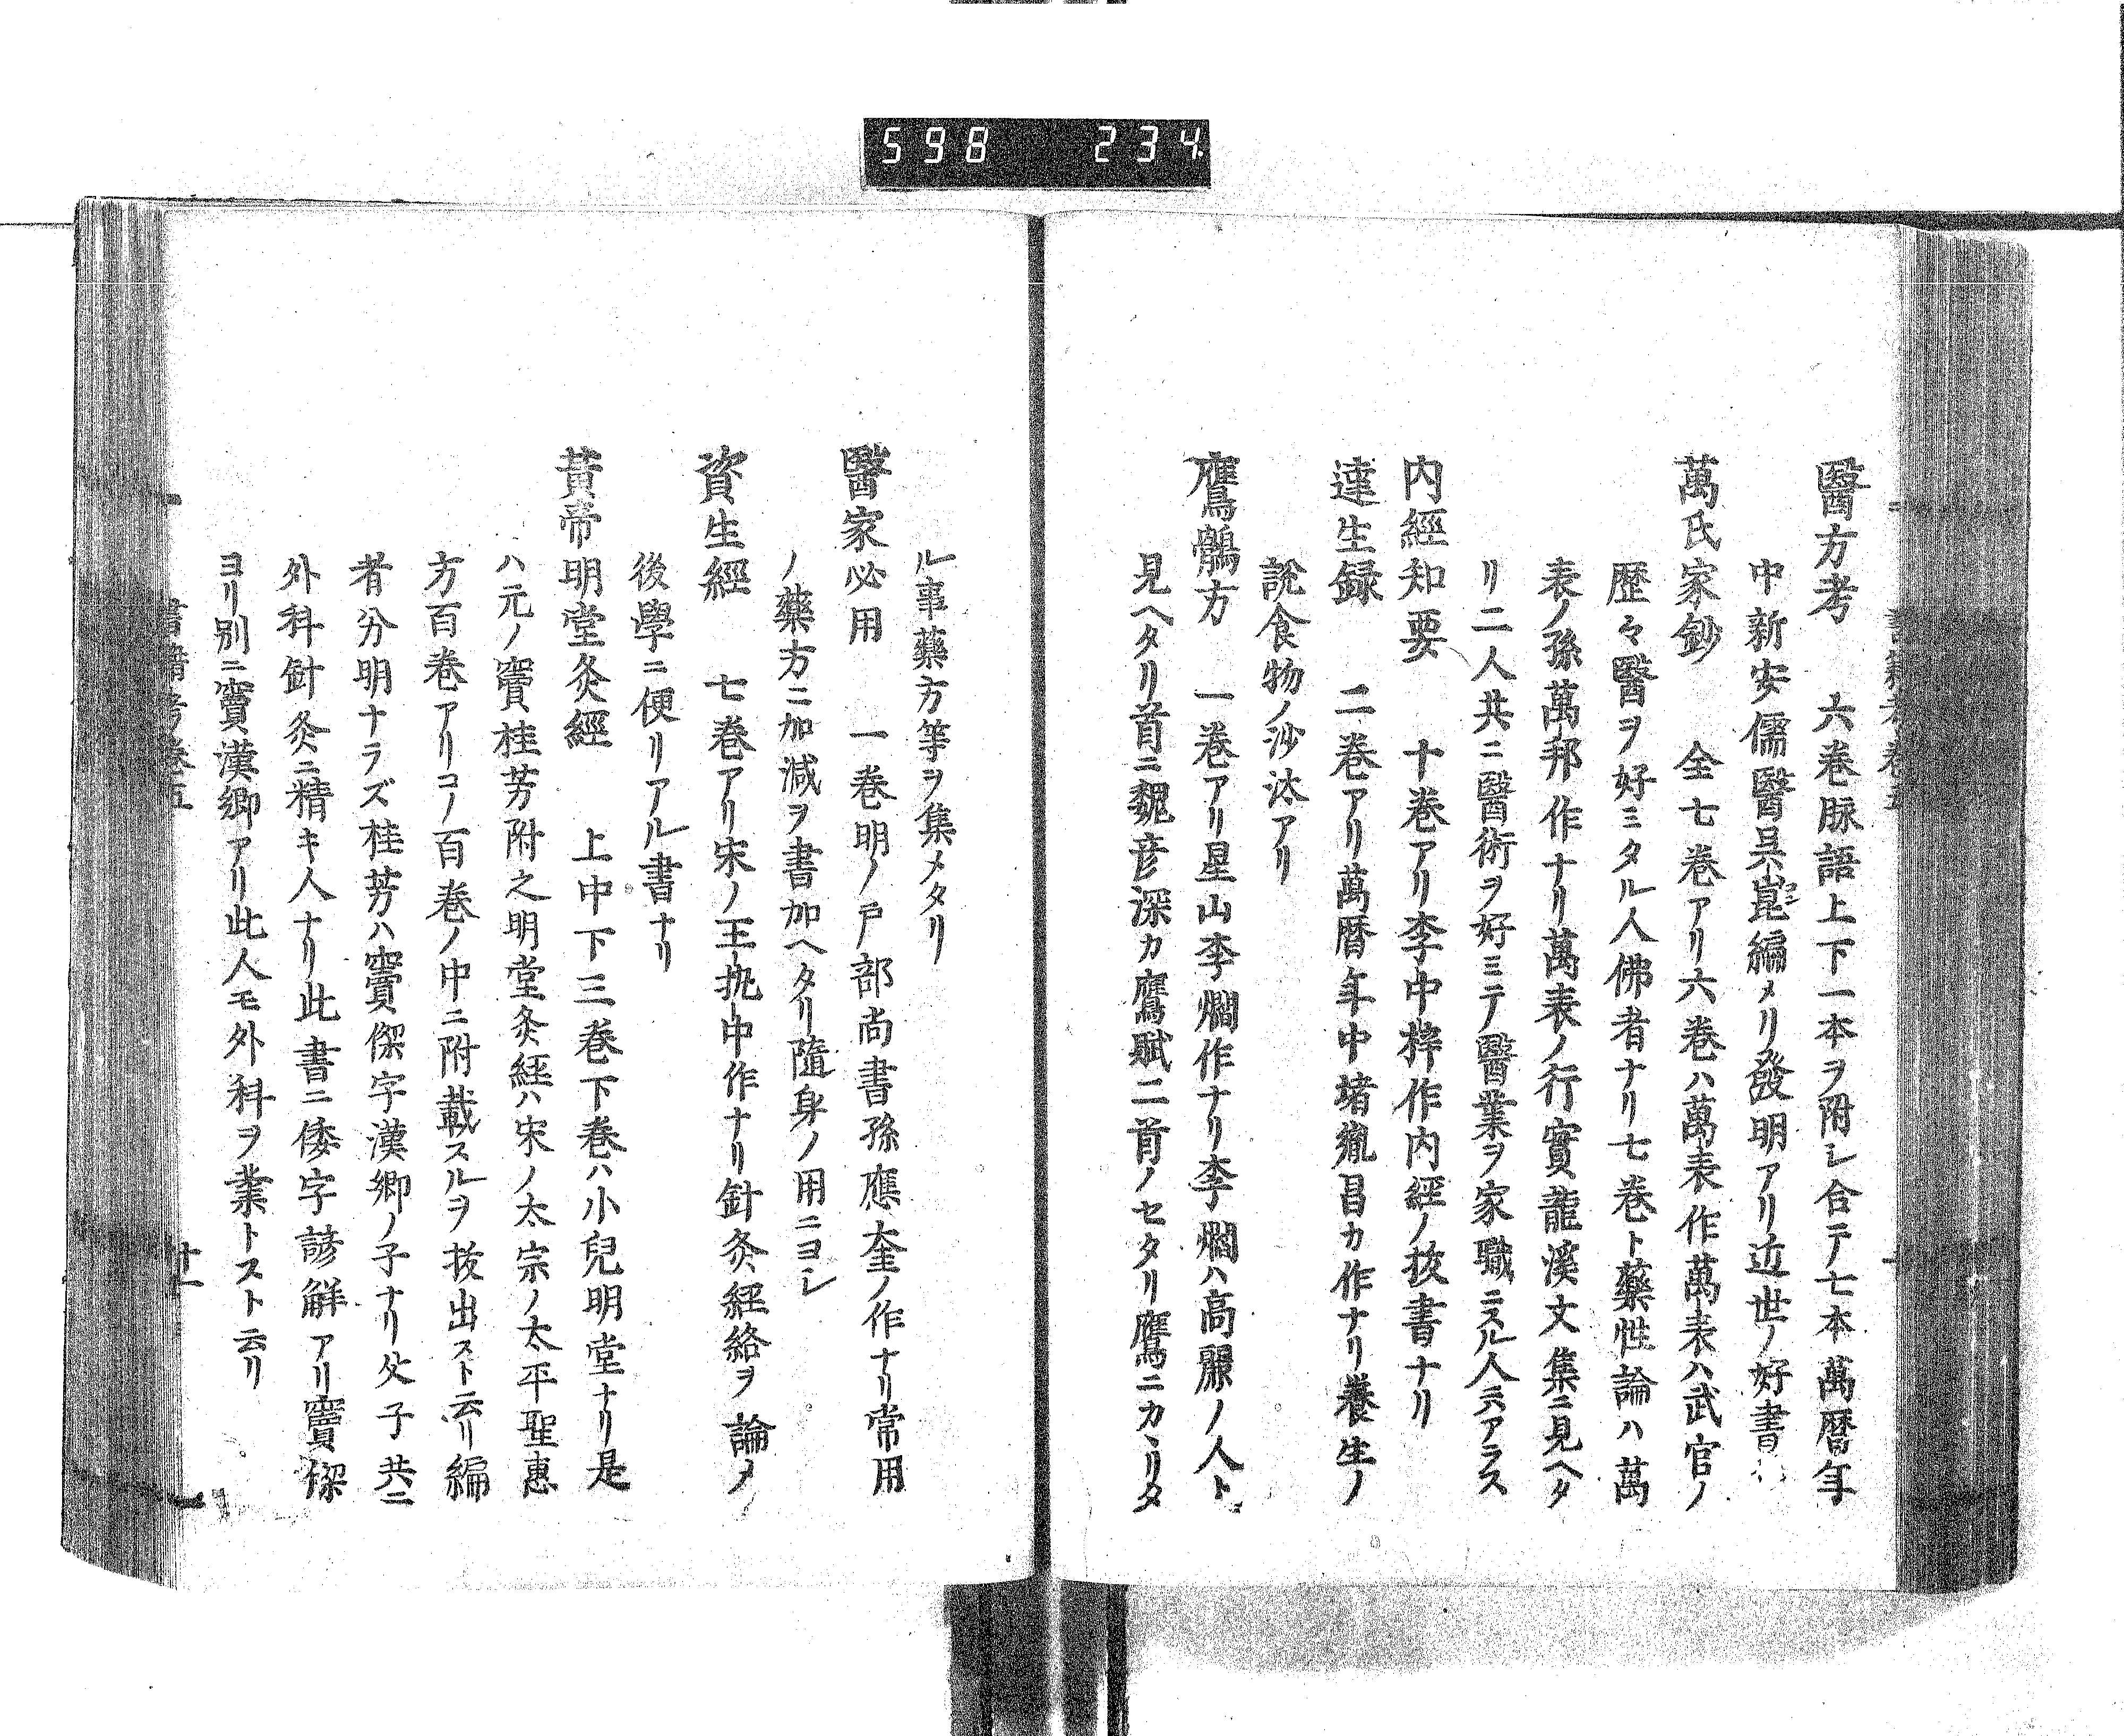 598 234
醫方考 六巻脉語上下一本ヲ附シ合テ七本萬暦年
中新安儒醫呉崑編メリ發明アリ近世ノ好書
萬氏家鈔 全七巻アリ六巻ハ萬表作萬表ハ武官ノ
歴々醫ヲ好ミタル人佛者ナリ七巻ト藥性論ハ萬
表ノ孫萬邦作ナリ萬表ノ行實龍溪文集ニ見ヘタ
リ二人共ニ醫術ヲ好ミテ醫業ヲ家職ニスル人ニアラス
内經知要 十巻アリ李中梓作内經ノ抜書ナリ
達生録 二巻アリ萬暦年中堵胤昌カ作ナリ養生ノ
說食物ノ沙汰アリ
鷹鶻方 一巻アリ星山李爓作ナリ李爓ハ高麗ノ人ト
見ヘタリ首ニ魏彦深カ鷹賦二首ノセタリ鷹ニカヽリタ
ル事藥方等ヲ集メタリ
醫家必用 一巻明ノ戸部尚書孫應奎ノ作ナリ常用
ノ藥方ニ加減ヲ書加ヘタリ隨身ノ用ニヨシ
資生經 七巻アリ宋ノ王執中作ナリ針灸経絡ヲ論メ
後學ニ便リアル書ナリ
黄帝明堂灸經 上中下三巻下巻ハ小兒明堂ナリ是
ハ元ノ竇桂芳附之明堂灸経ハ宋ノ太宗ノ太平聖惠
方百巻アリコノ百巻ノ中ニ附載スルヲ抜出スト云リ編
者分明ナラズ桂芳ハ竇傑字漢郷ノ子ナリ父子共ニ
外科針灸ニ精キ人ナリ此書ニ倭字諺解アリ竇傑
ヨリ別ニ竇漢郷アリ此人モ外科ヲ業トスト云リ
書籍考巻五
廿一